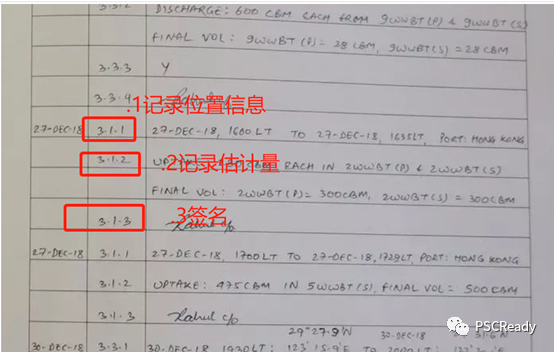 3.3.2 DISCHARGE: 600 CBM EACH FROM 9WWBT(P) & 9WWBT(S)
FINAL VOL: 9WWBT(P) = 28 CBM, 9WWBT(S) = 28 CBM
3.3.3 Y
3.3.4
.1记录位置信息
27-DEC-18 3.1.1 27-DEC-18, 1600LT TO 27-DEC-18, 1635LT, PORT: HONG KONG
3.1.2 CBM EACH IN 2WWBT(P) & 2WWBT(S)
.2记录估计量
FINAL VOL: 2WWBT(P) = 300CBM, 2WWBT(S) = 300CBM
.3签名
3.1.3 Rahul c/o
27-DEC-18 3.1.1 27-DEC-18, 1700LT TO 27-DEC-18, 1729LT, PORT: HONG KONG
3.1.2 UPTAKE: 475 CBM IN 5WWBT(S), FINAL VOL = 500CBM
3.1.3 Rahul c/o
29°27.9'N 30-DEC-18
30-DEC-18 3.3.1 30-DEC-18, 1930LT: 123°15.9'E TO 2000LT:
PSCReady